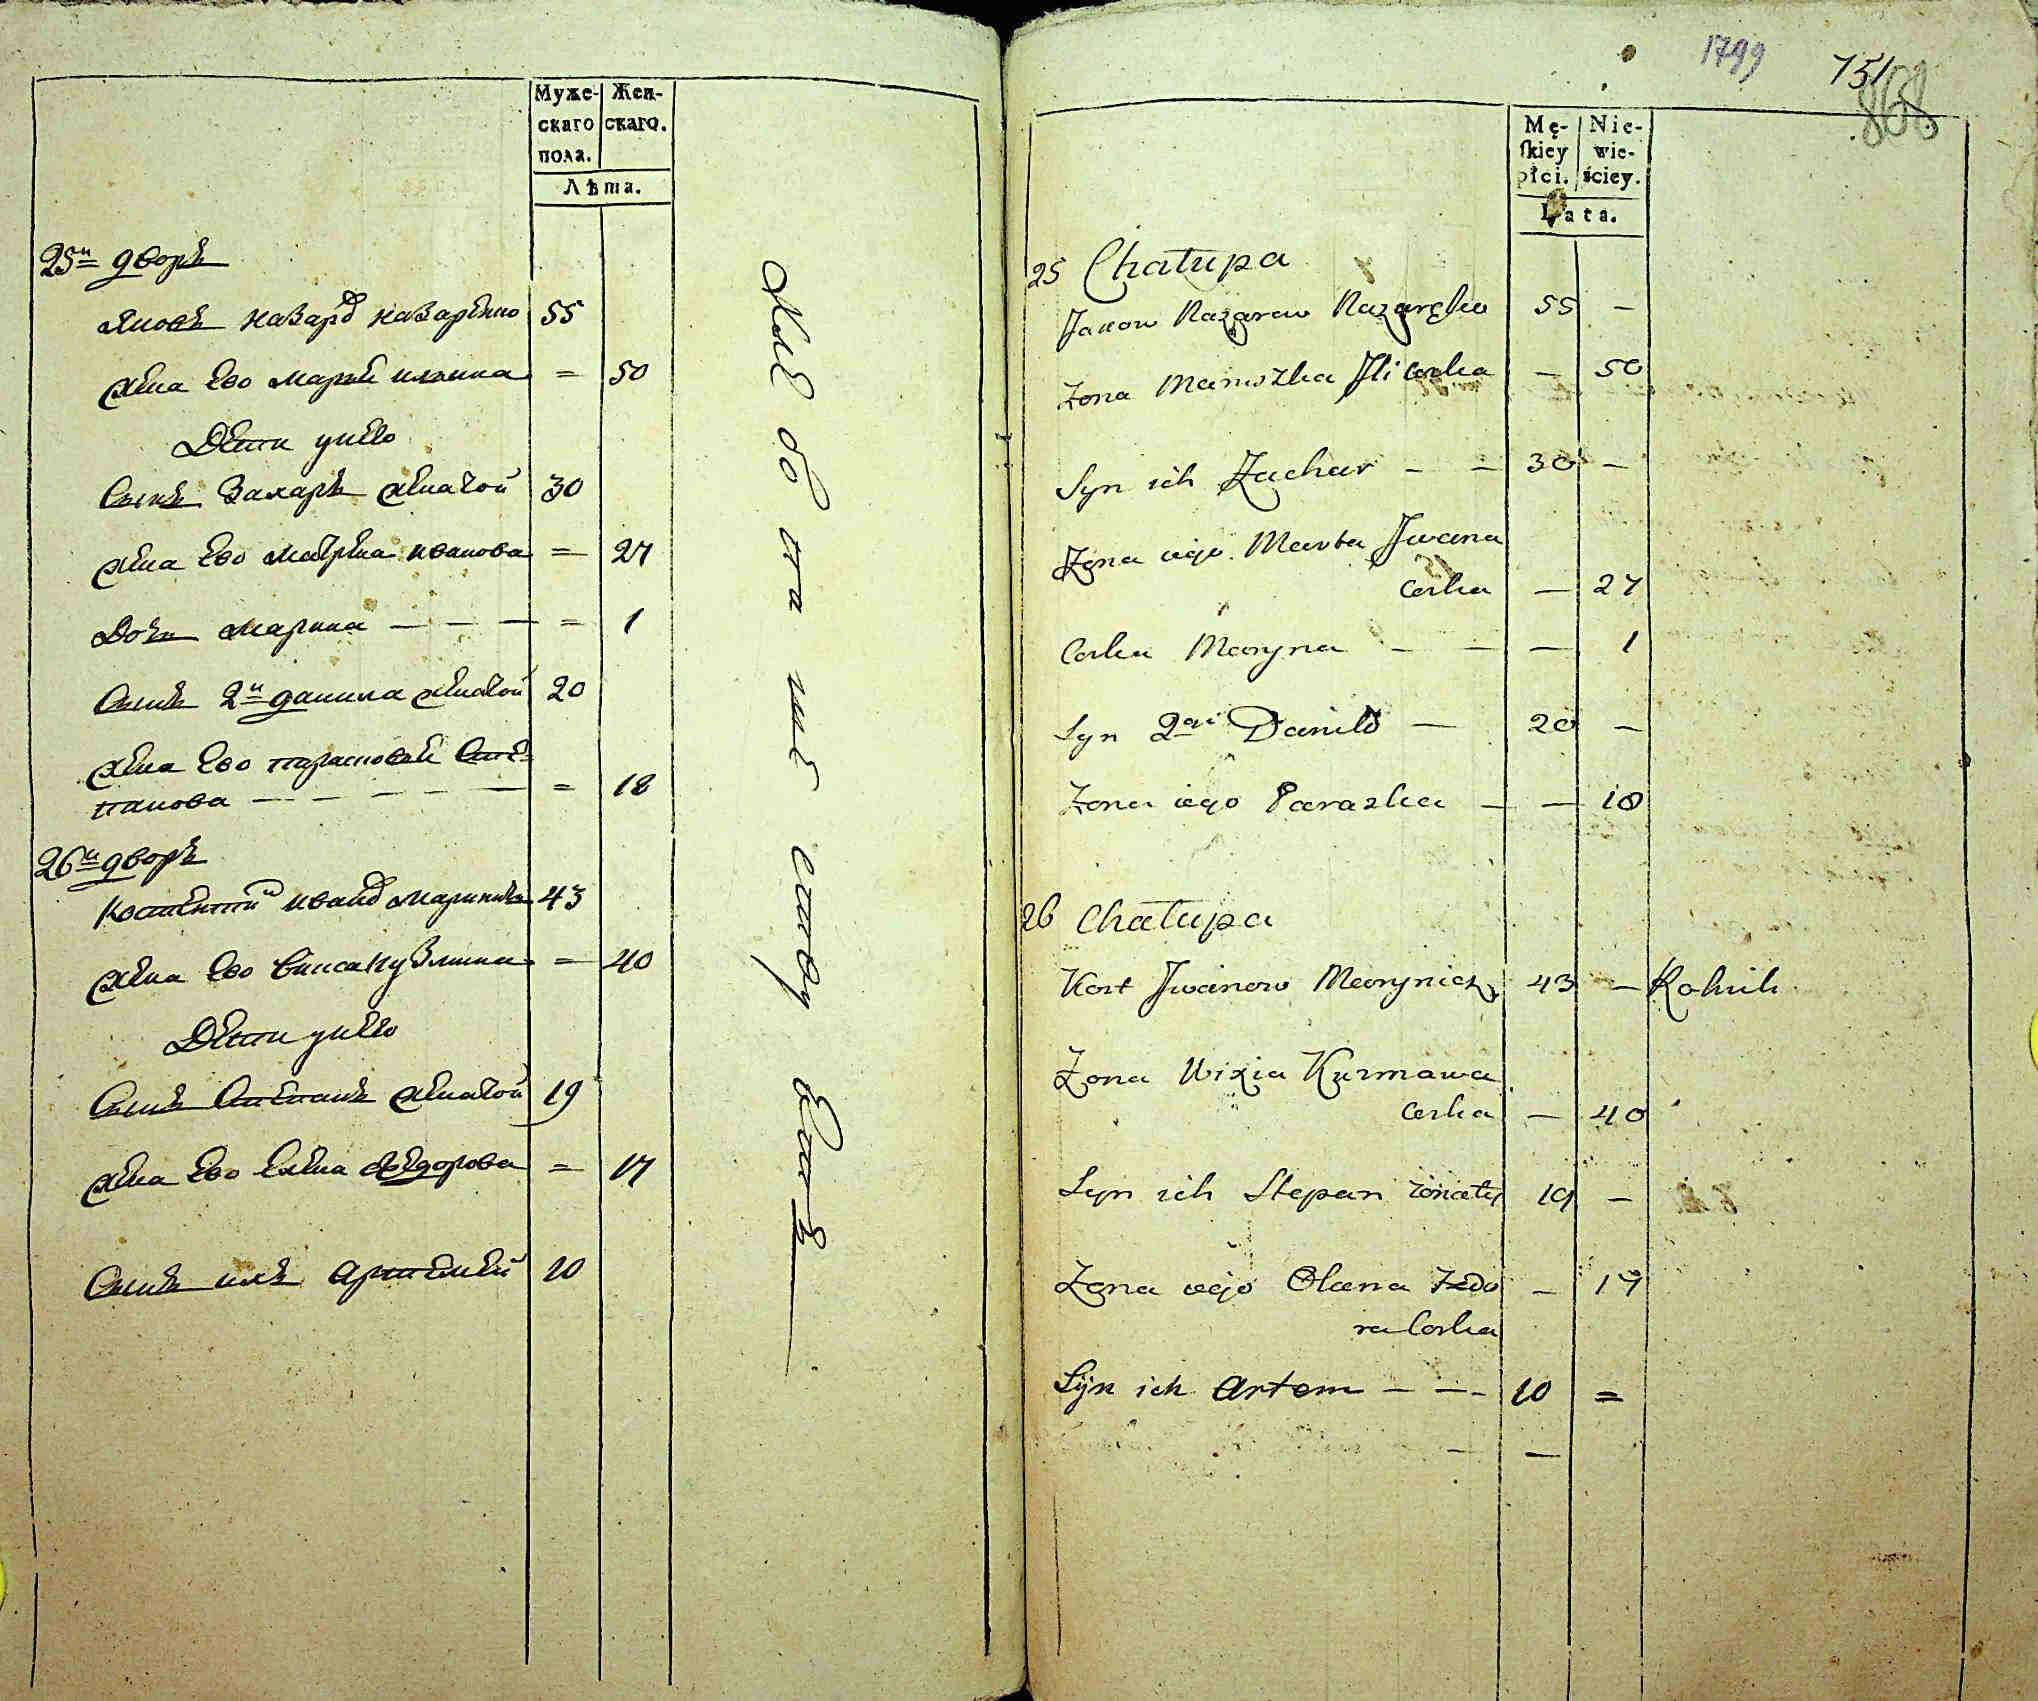 Муже-
скаго
пола.
Жен-
скаго.
Лѣта.
25й дворъ
Яковъ назаровъ назаренко 55
Жена Ево марья ильина = 50
Дети унего
Сынъ Захаръ женатой 30
Жена Ево матрена иванова = 27
Дочь марина — — — = 1
Сынъ 2й данила женатой 20
Жена Ево парасковья Сте-
панова — — — — — = 18
26й дворъ
Костентин ивановъ маринич 43
Жена Ево Кузмина = 40
Дети унего
Сынъ Степанъ женатой 19
Жена Ево Елена Федорова = 17
Сынъ ихъ Артемей 10
1799
151
868
Mę-
skiey
płci.
Nie-
wie-
ściey.
Lata.
25 Chałupa
Jakow Nazarow Nazaręko 55 —
Żona Maruszka Ili Corka — 50
Syn ich Zachar — — 30 —
Żona iego Marta Jwana
Corka — 27
Corka Maryna — — — 1
Syn 2gi Daniło — 20 —
Żona iego Paraska — — 18
26 Chałupa
Kost Jwanow Marynicz 43 — Rolnik
Żona Wixia Kuzmawa
Corka — 40
Syn ich Stepan żonaty 19 —
Żona iego Olena Fedo — 17
ra Corka
Syn ich Artem — — - 10 =
— —